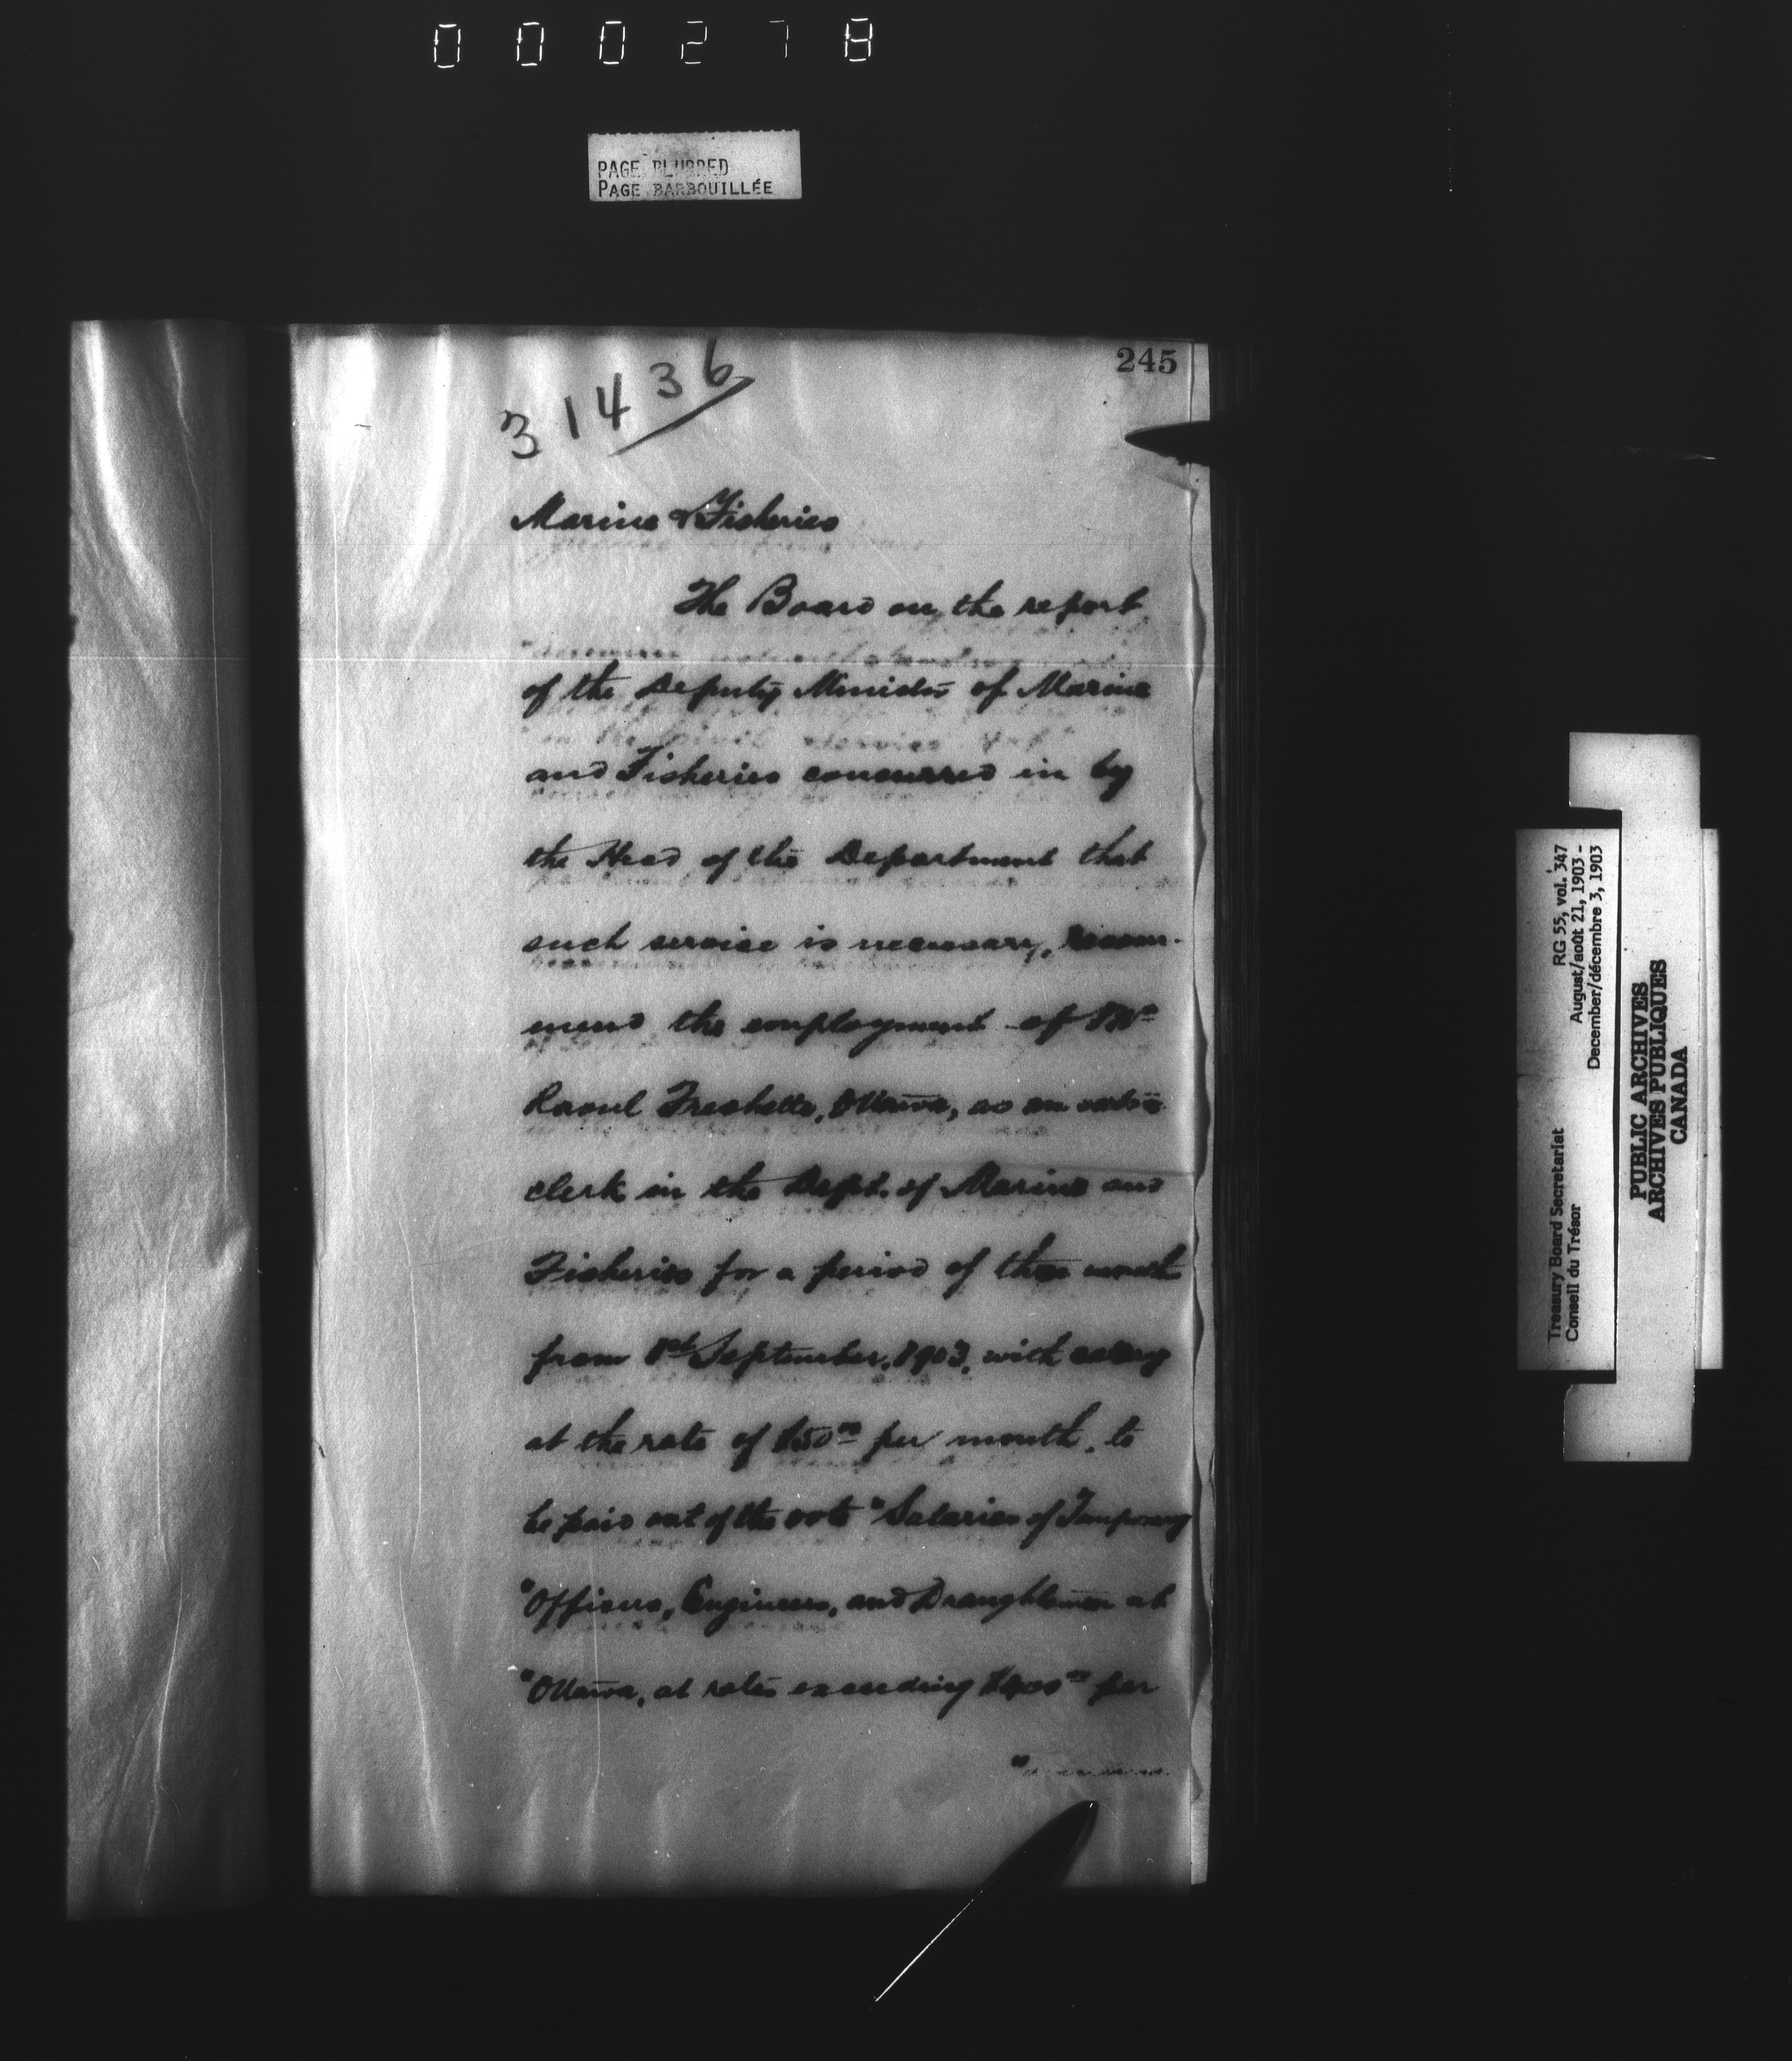 000278
PAGE BLURRED
PAGE BARBOUILLÉE
245
31436
Marine & Fisheries
The Board on the report
of the Deputy Minister of Marine
and Fisheries concurred in by
the Head of the Department that
such service is necessary, recom-
mend the employment of Mr
Raoul Frechette, Ottawa, as an extra
clerk in the Dept. of Marine and
Fisheries for a period of three months
from 1st September, 1903, with salary
at the rate of $50 00 per month, to
be paid out of the vote "Salaries of Temporary
"Officers, Engineers, and Draughtsmen at
"Ottawa, at rates exceeding $400 00 per
RG 55, vol. 347
August/août 21, 1903 -
December/décembre 3, 1903
Treasury Board Secretariat
Conseil du Trésor
PUBLIC ARCHIVES
ARCHIVES PUBLIQUES
CANADA